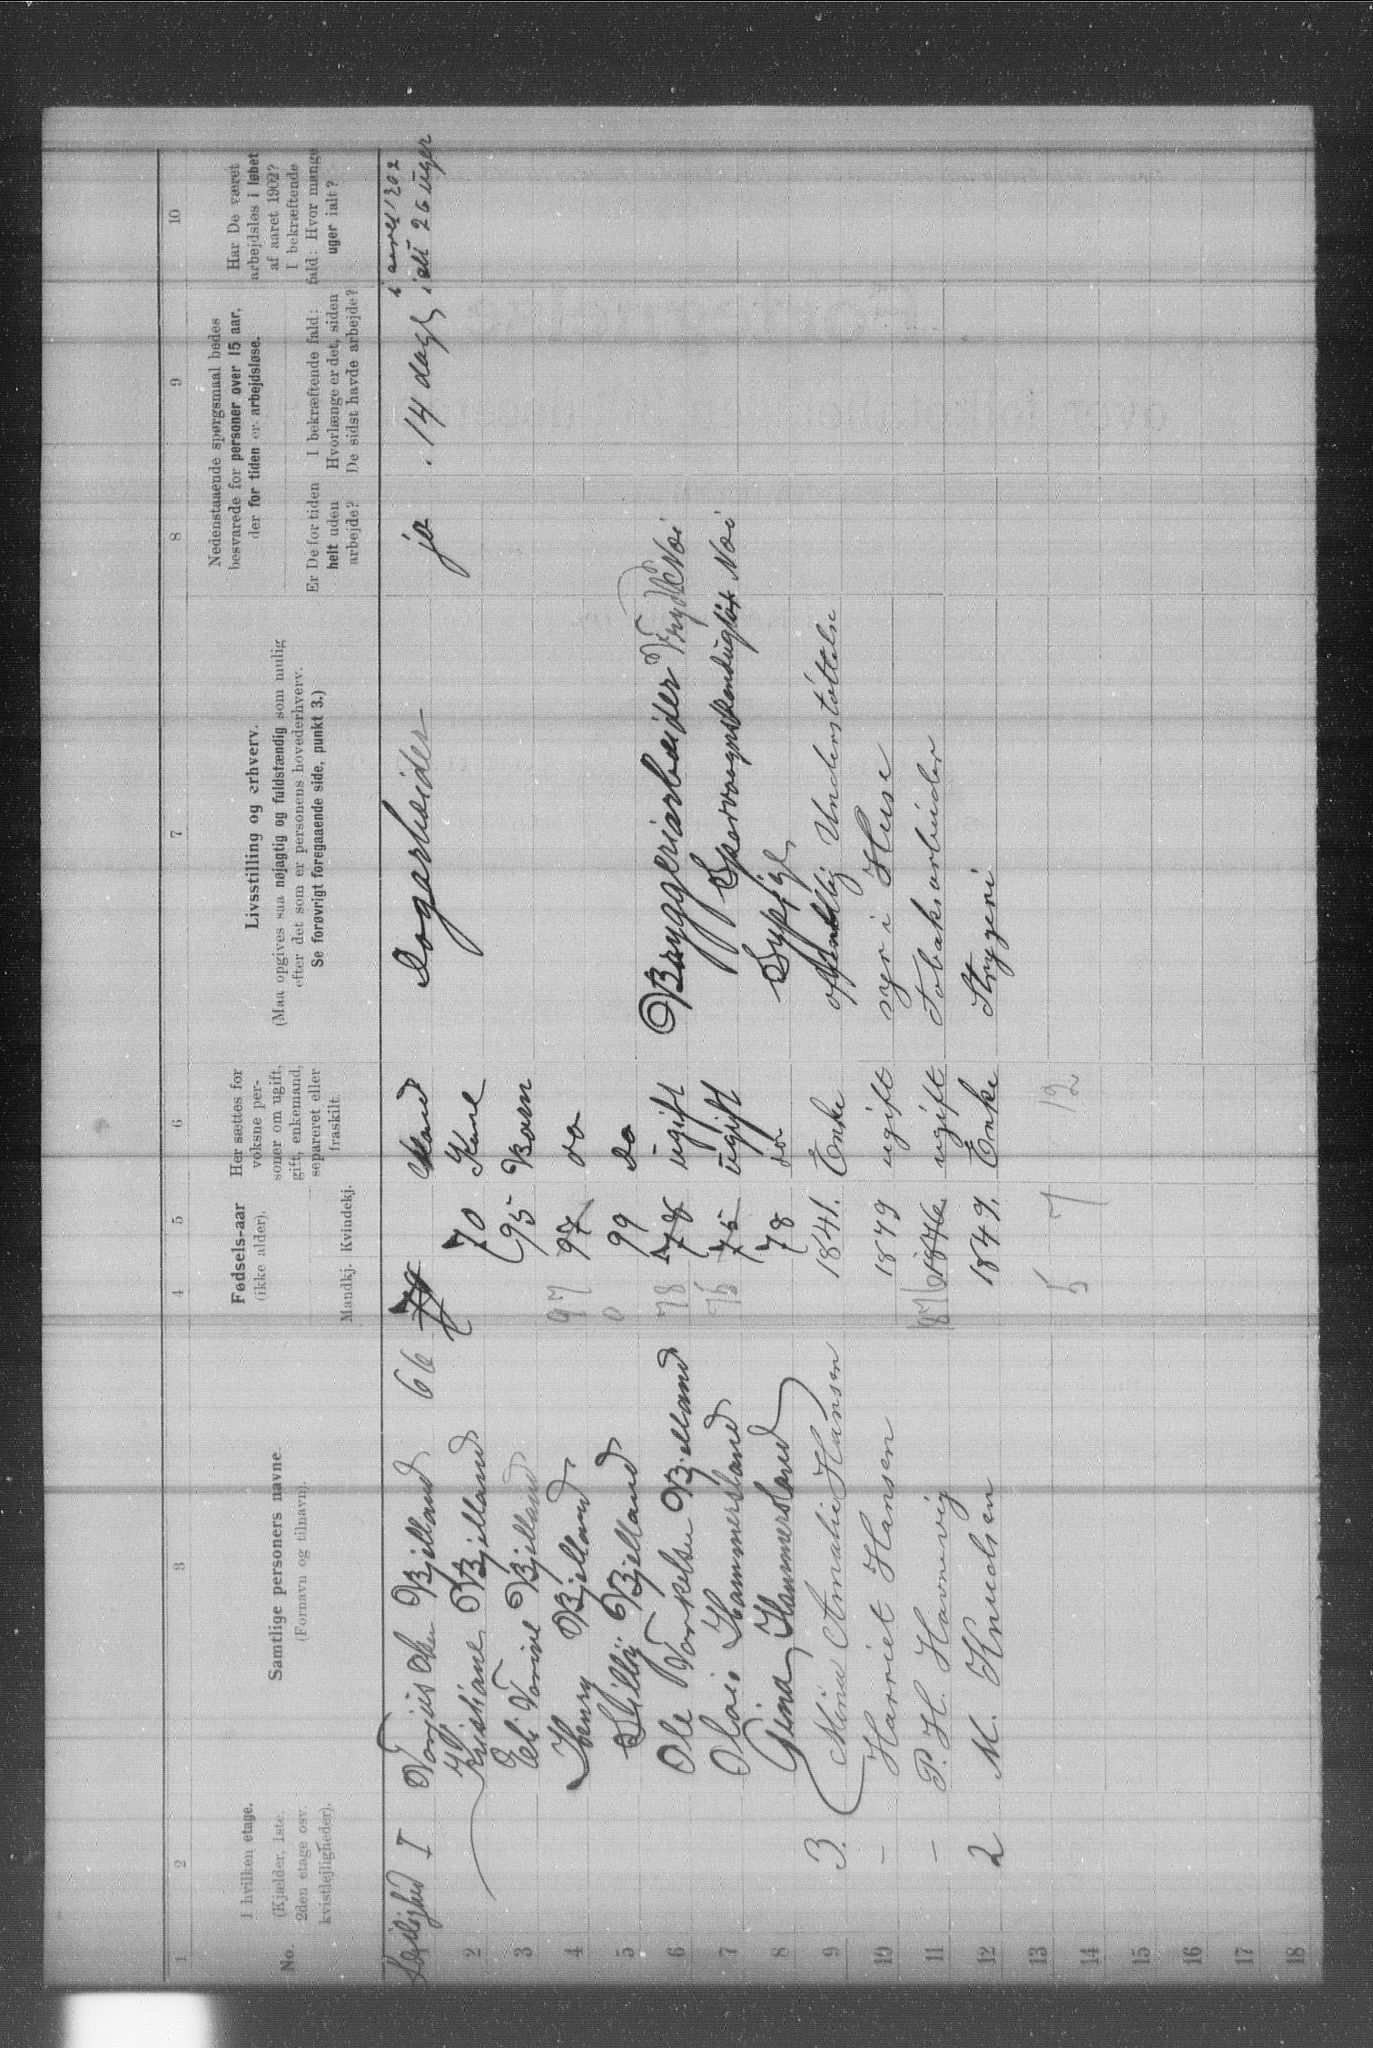 1 2 3 4 5 6 7 8 9 10
No.
I hvilken etage.
(Kjælder, 1ste,
2den etage osv.
kvistlejligheder).
Samtlige personers navne
(Fornavn og tilnavn).
Fødsels-aar
(ikke alder).
Mandkj. Kvindekj.
Her sættes for
voksne per-
soner om ugift,
gift, enkemand,
separeret eller
fraskilt
Livsstilling og erhverv.
(Maa opgives saa nøjagtig og fuldstændig som mulig
efter det som er personens hovederhverv.
Se forøvrigt foregaaende side, punkt 3.)
Nedenstaaende spørgsmaal bedes
besvarede for personer over 15 aar,
der for tiden er arbejdsløse.
Er De for tiden
helt uden
arbejde?
I bekræftende fald:
Hvorlænge er det, siden
De sidst havde arbejde?
Har De været
arbejdsløs i løbet
af aaret 1902?
I bekræftende
fald: Hvor mange
uger ialt?
I Bjelland 66 Mand Dogarbeider ja 14 dage i aaret 1902 ialt 26 uger
2 Kristiane Bjelland 70 Kone
3 Eli Torine Bjelland 95 Barn
4 Henry Bjelland 97 97 do
5 Bjelland 0 99 do
6 Ole Torkelsen Bjelland 78 78 ugift Bryggeriarbeider Nei
7 Olai Hammersland 75 75 ugift Nei
8 Gina Hammersland 78 do Sypige
9 3. Mina Amalie Hansen 1841. Enke offentlig Understøttelse
10 - Harriet Hansen 1879 ugift syr i Huse
11 - P. H. Havnevig 1876 1876 ugift Tobaksarbeider
12 2 M. Knudsen 1849. Enke Strygeri
13
14 5 7 12
15
16
17
18